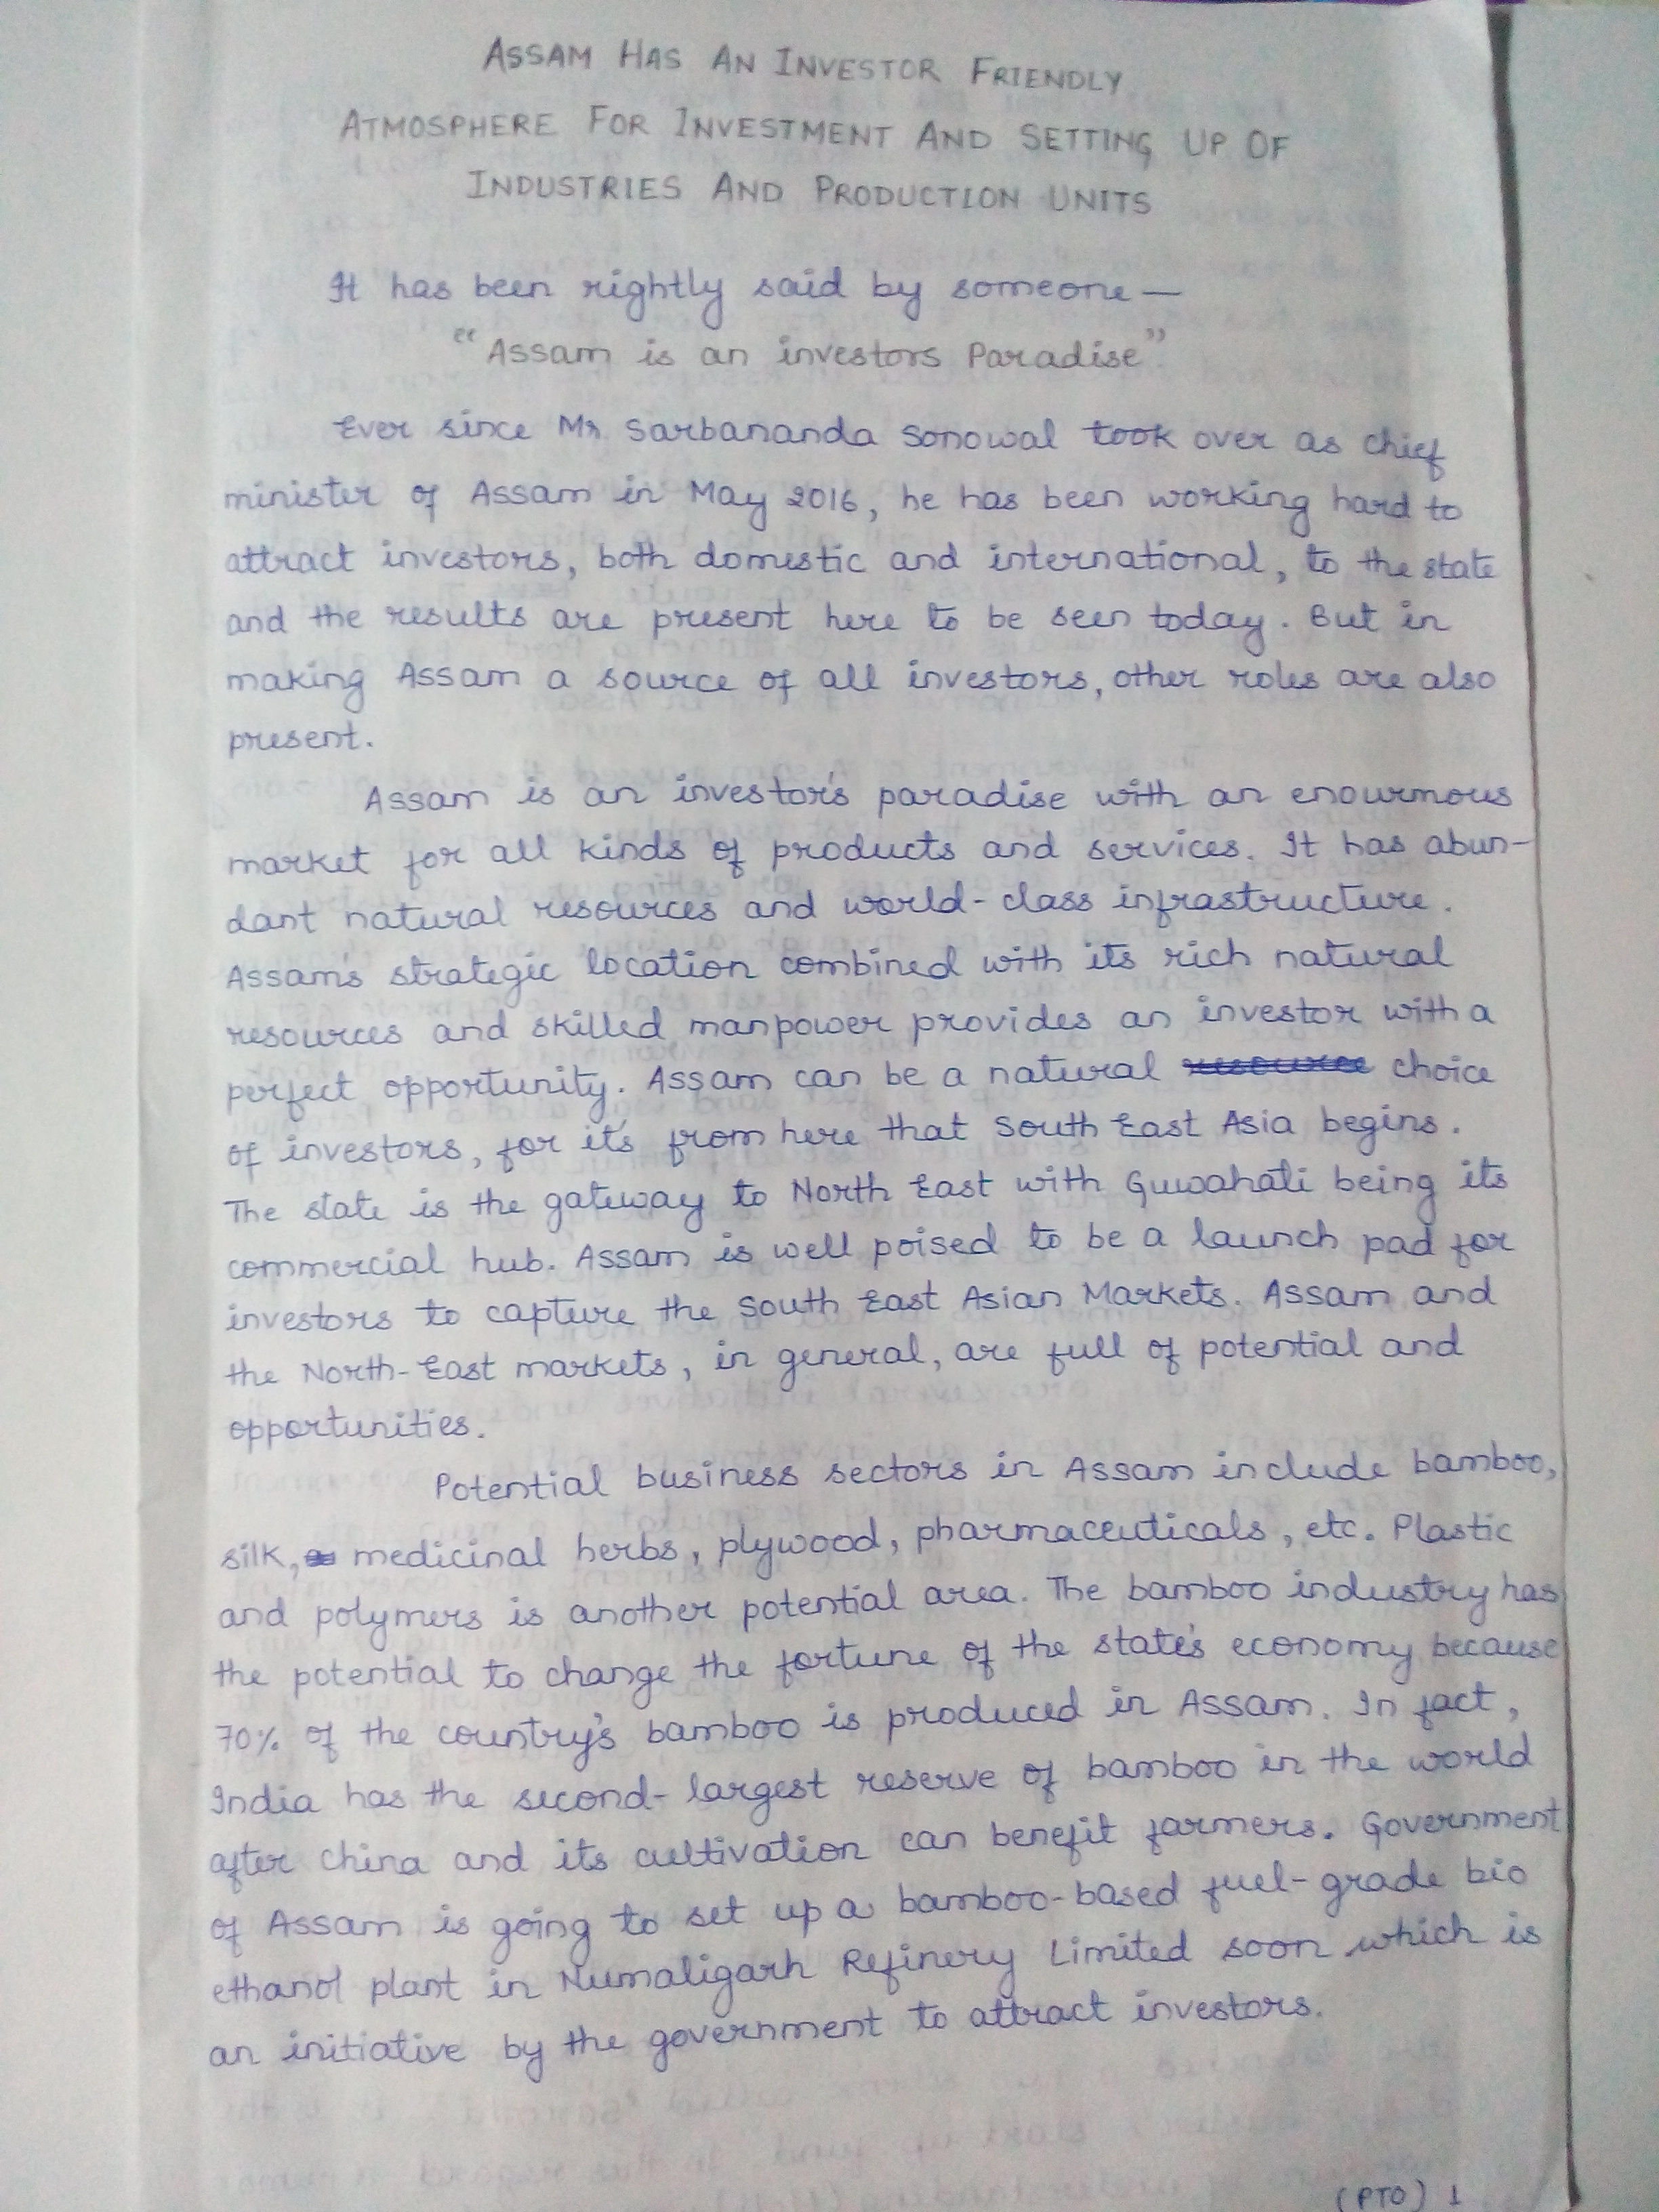 ASSAM HAS AN INVESTOR FRIENDLY
ATMOSPHERE FOR INVESTMENT AND SETTING UP OF
INDUSTRIES AND PRODUCTION UNITS
It has been rightly said by someone —
"Assam is an investors Paradise".
Ever since Mr Sarbananda Sonowal took over as chief
minister of Assam in May 2016, he has been working hard to
attract investors, both domestic and international, to the state
and the results are present here to be seen today. But in
making Assam a source of all investors, other roles are also
present.
Assam is an investor's paradise with an enourmous
market for all kinds of products and services. It has abun-
dant natural resources and world-class infrastructure.
Assam's strategic location combined with its rich natural
resources and skilled manpower provides an investor with a
perfect opportunity. Assam can be a natural choice
of investors, for it's from here that South East Asia begins.
The state is the gateway to North East with Guwahati being its
commercial hub. Assam is well poised to be a launch pad for
investors to capture the South East Asian Markets. Assam and
the North-East markets, in general, are full of potential and
opportunities.
Potential business sectors in Assam include bamboo,
silk, medicinal herbs, plywood, pharmaceuticals, etc. Plastic
and polymers is another potential area. The bamboo industry has
the potential to change the fortune of the state's economy because
70% of the country's bamboo is produced in Assam. In fact,
India has the second-largest reserve of bamboo in the world
after China and its cultivation can benefit farmers. Government
of Assam is going to set up a bamboo-based fuel-grade bio
ethanol plant in Numaligarh Refinery Limited soon which is
an initiative by the government to attract investors.
(PTO) 1